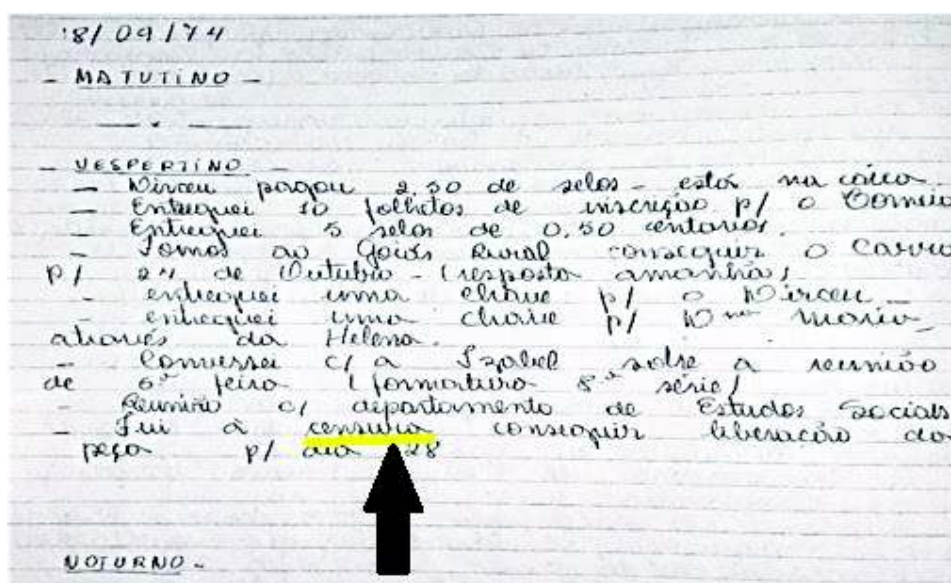 18/09/74
- MATUTINO -
- VESPERTINO -
- Dirceu pagou 2,50 de selos - está na caixa
- Entreguei 10 folhetos de inscrição p/ o Correio
Entreguei 5 selos de 0,50 centavos.
- Fomos ao Goiás Rural conseguir o carro
p/ 24 de Outubro - (resposta amanhã)
- entreguei uma chave p/ o Dirceu -
- entreguei uma chave p/ Dna Maria
através da Helena.
- Conversei c/ a Izabel sobre a reunião
de 6ª feira (formatura 8ª série)
- Reunião c/ departamento de Estudos Sociais
- Fui à censura conseguir liberação da
peça p/ dia 28
NOTURNO -